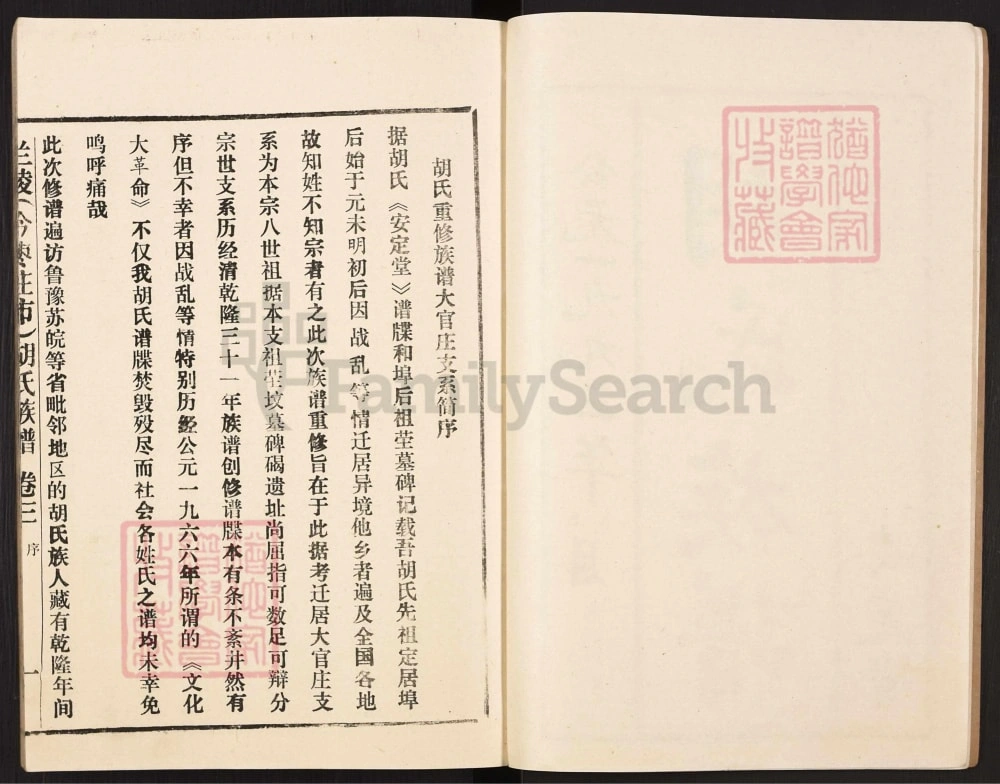 胡氏重修族谱大官庄支系简序
据胡氏《安定堂》谱牒和埠后祖茔墓碑记载吾胡氏先祖定居埠
后始于元末明初后因战乱等情迁居异境他乡者遍及全国各地
故知姓不知宗者有之此次族谱重修旨在于此据考迁居大官庄支
系为本宗八世祖据本支祖茔坟墓碑碣遗址尚屈指可数足可辩分
宗世支系历经清乾隆三十一年族谱创修谱牒本有条不紊井然有
序但不幸者因战乱等情特别历经公元一九六六年所谓的《文化
大革命》不仅我胡氏谱牒焚毁殁尽而社会各姓氏之谱均未幸免
鸣呼痛哉
此次修谱遍访鲁豫苏皖等省毗邻地区的胡氏族人藏有乾隆年间
兰陵(今枣庄市)胡氏族谱 卷三 序 一
猶他家
譜學會
收藏
猶他家
譜學會
收藏
FamilySearch